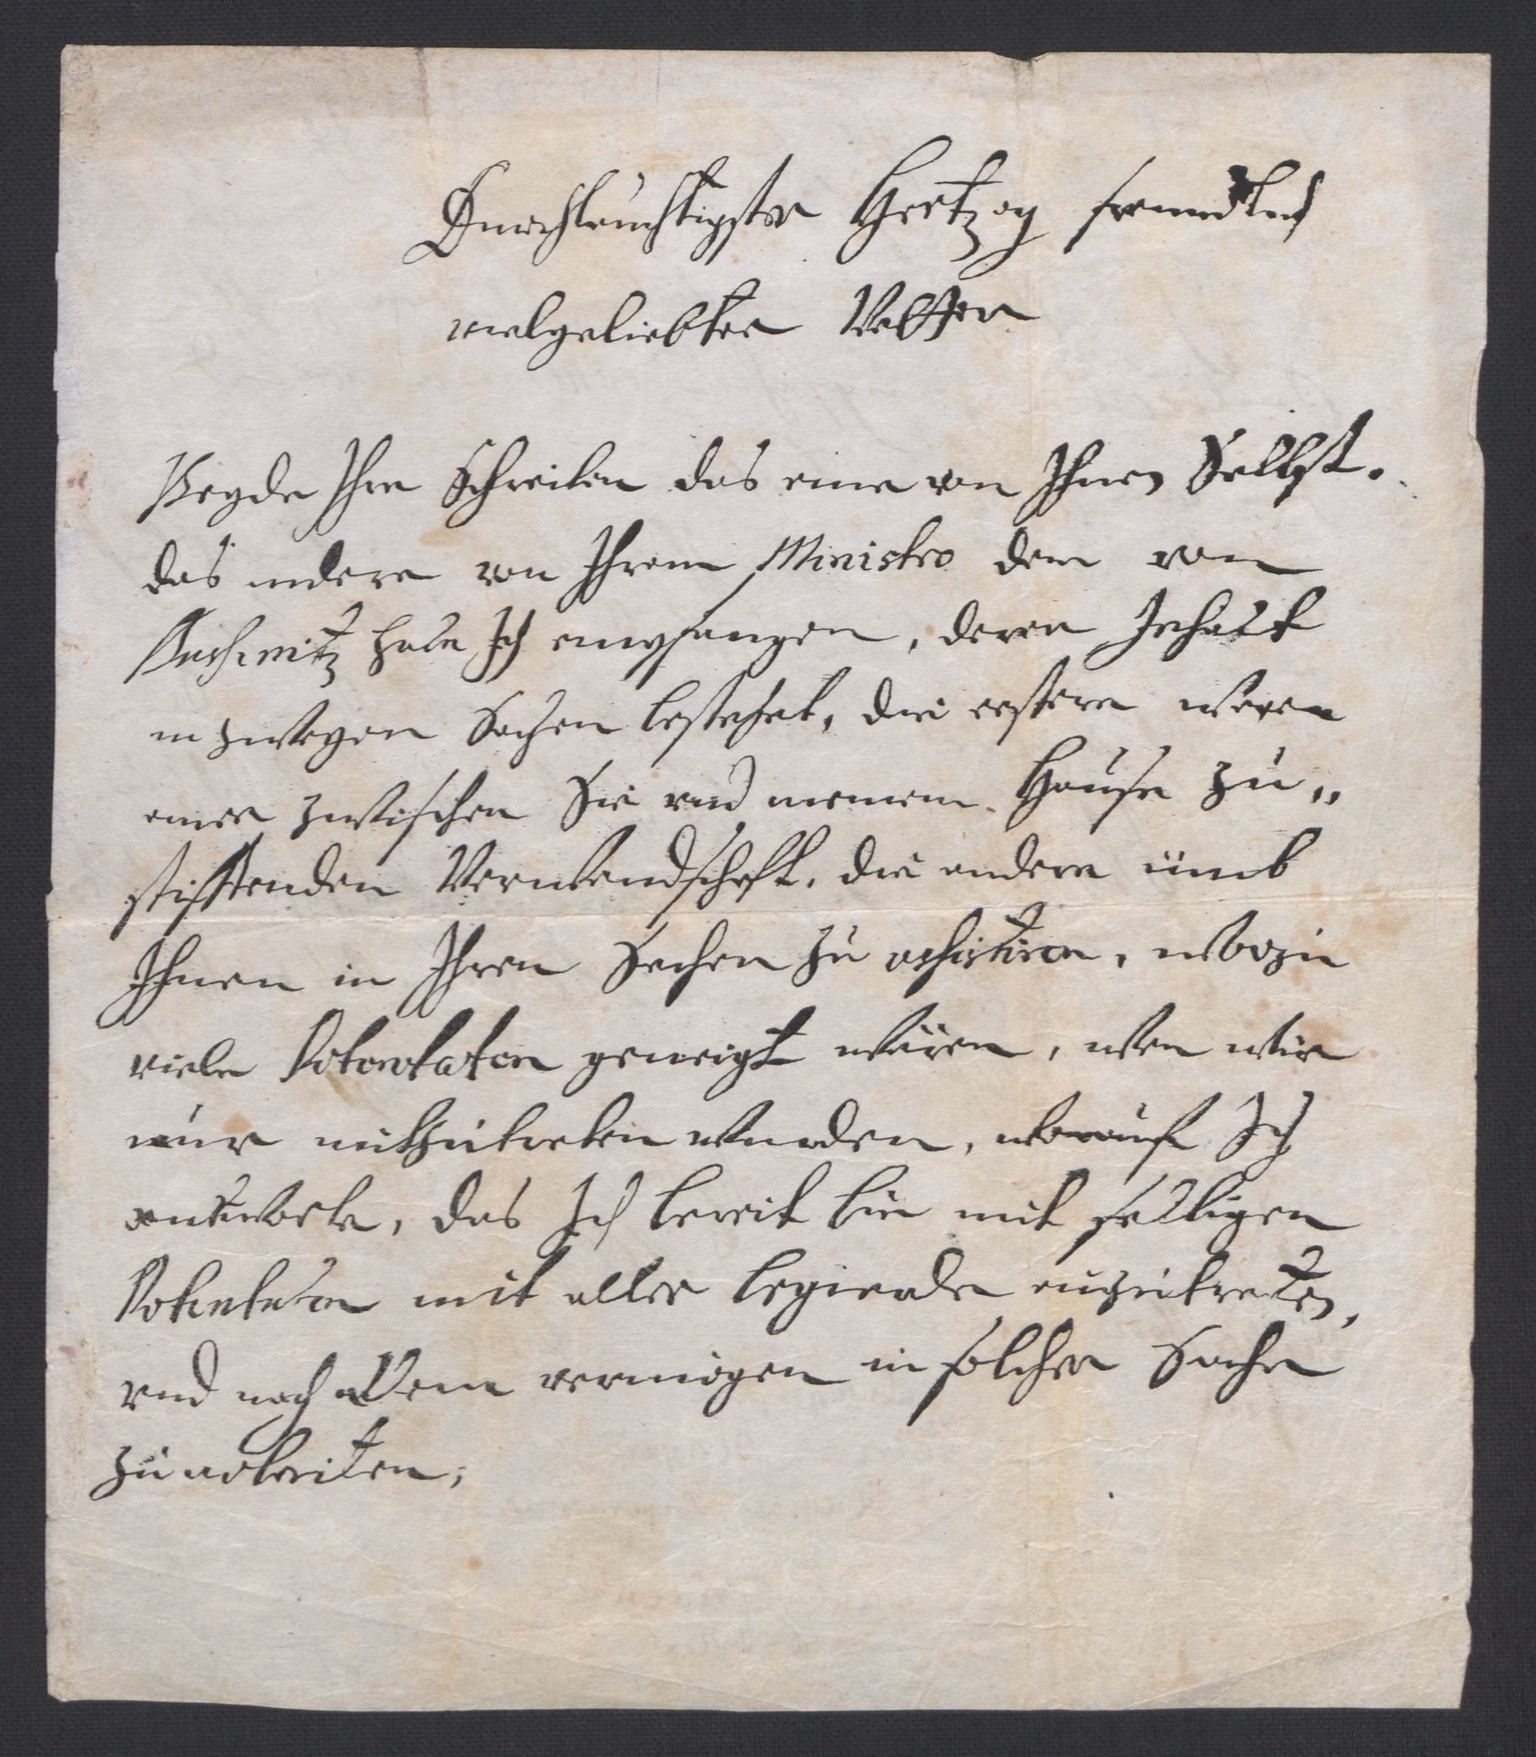 Durchleuchtigster Hertzog freundlich
vielgeliebter Vetter
Beyde Ihre Schreiben das eine von Ihnen Selbst.
das andere von Ihrem Ministro dem von
habe Ich empfangen, deren Inhalt
in zweyen Sachen bestehet, die erstere wegen
einer zwischen Sie und meinem Hause zu„
stifftenden Verwandschafft, die andere umb
Ihnen in Ihren Sachen zu assistiren, wozu
viele Potentaten geneigt wären, wen wir
nur mitzutreten wurden, worauf Ich
antworte, das Ich bereit bin mit selbigen
Potentaten mit aller begierde anzutreten,
und nach allem vermögen in solcher Sache
zu arbeiten;